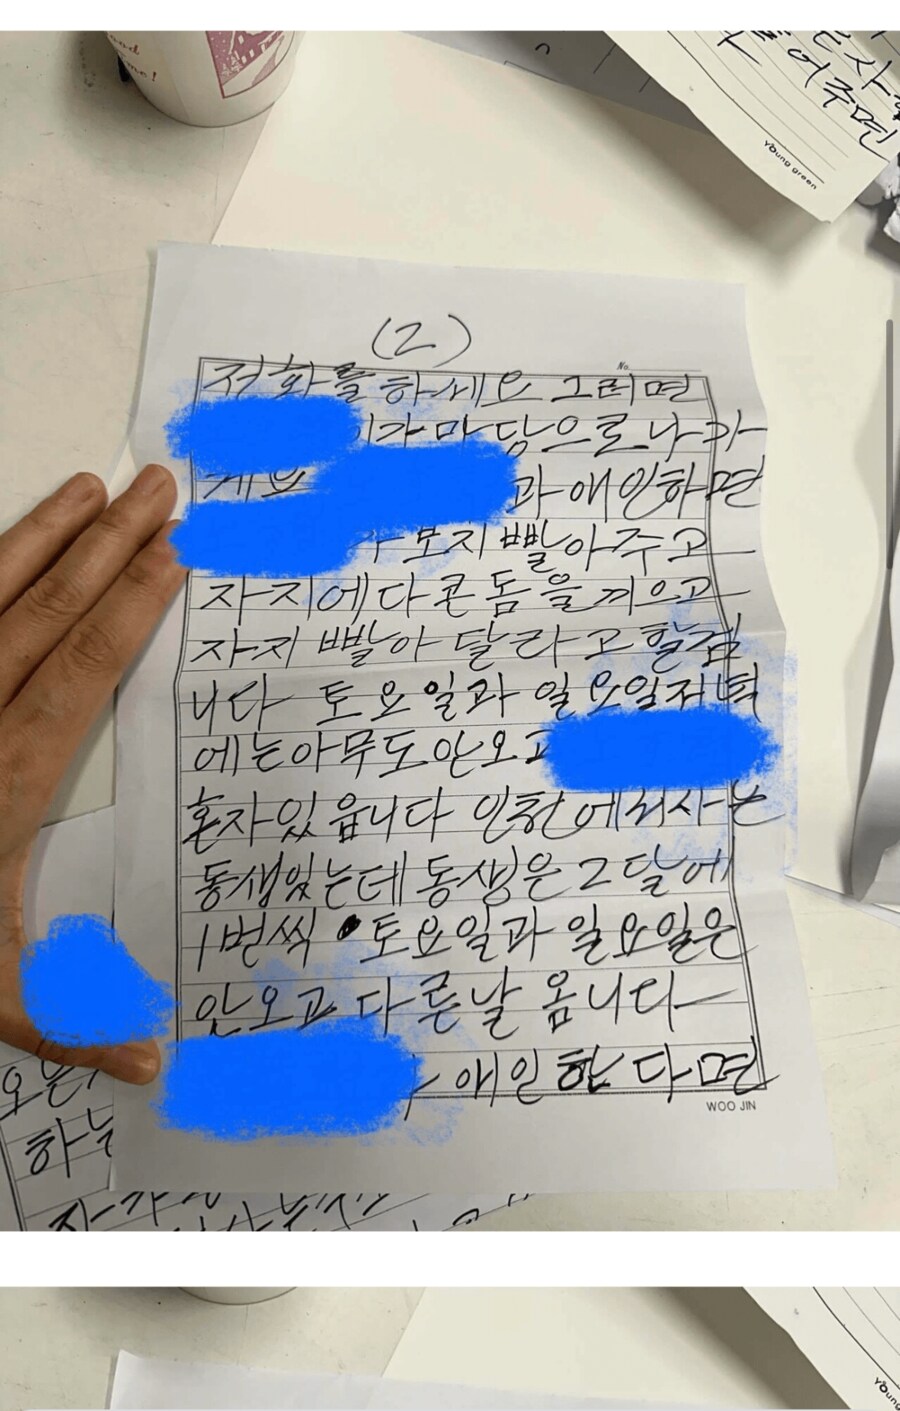 ood
me!
사
어주면
Young green
(2)
No.
저화를 하세요 그러면
가 마당으로 나가
과 애인하면
보지 빨아주고
자지에다 콘돔을 끼으고
자지 빨아 달라고 할겁
니다 토요일과 일요일저녁
에는아무도안오고
혼자있읍니다 인천에서사는
동생있는데 동생은 2달에
1번씩 토요일과 일요일은
안오고 다른날 옵니다
애인한다면
WOO JIN
하는
Young